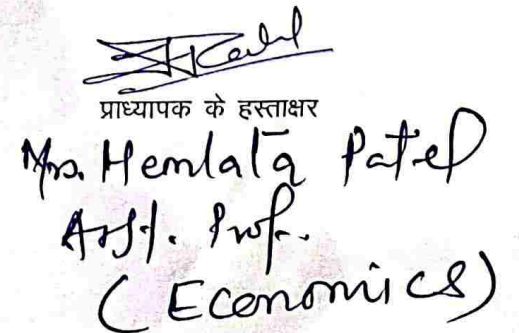 प्राध्यापक के हस्ताक्षर
Mrs. Hemlata Patel
Asst. Prof.
(Economics)